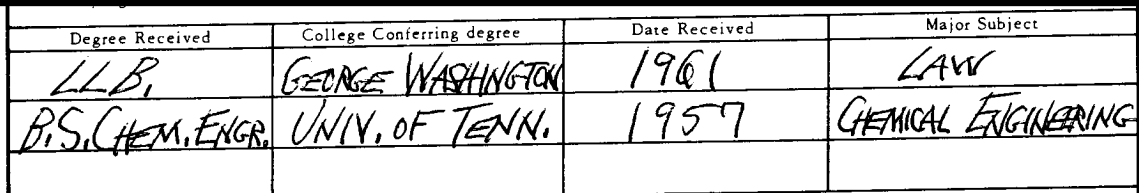 Degree Received College Conferring degree Date Received Major Subject
LLB. GEORGE WASHINGTON 1961 LAW
B.S. CHEM. ENGR. UNIV. OF TENN. 1957 CHEMICAL ENGINEERING